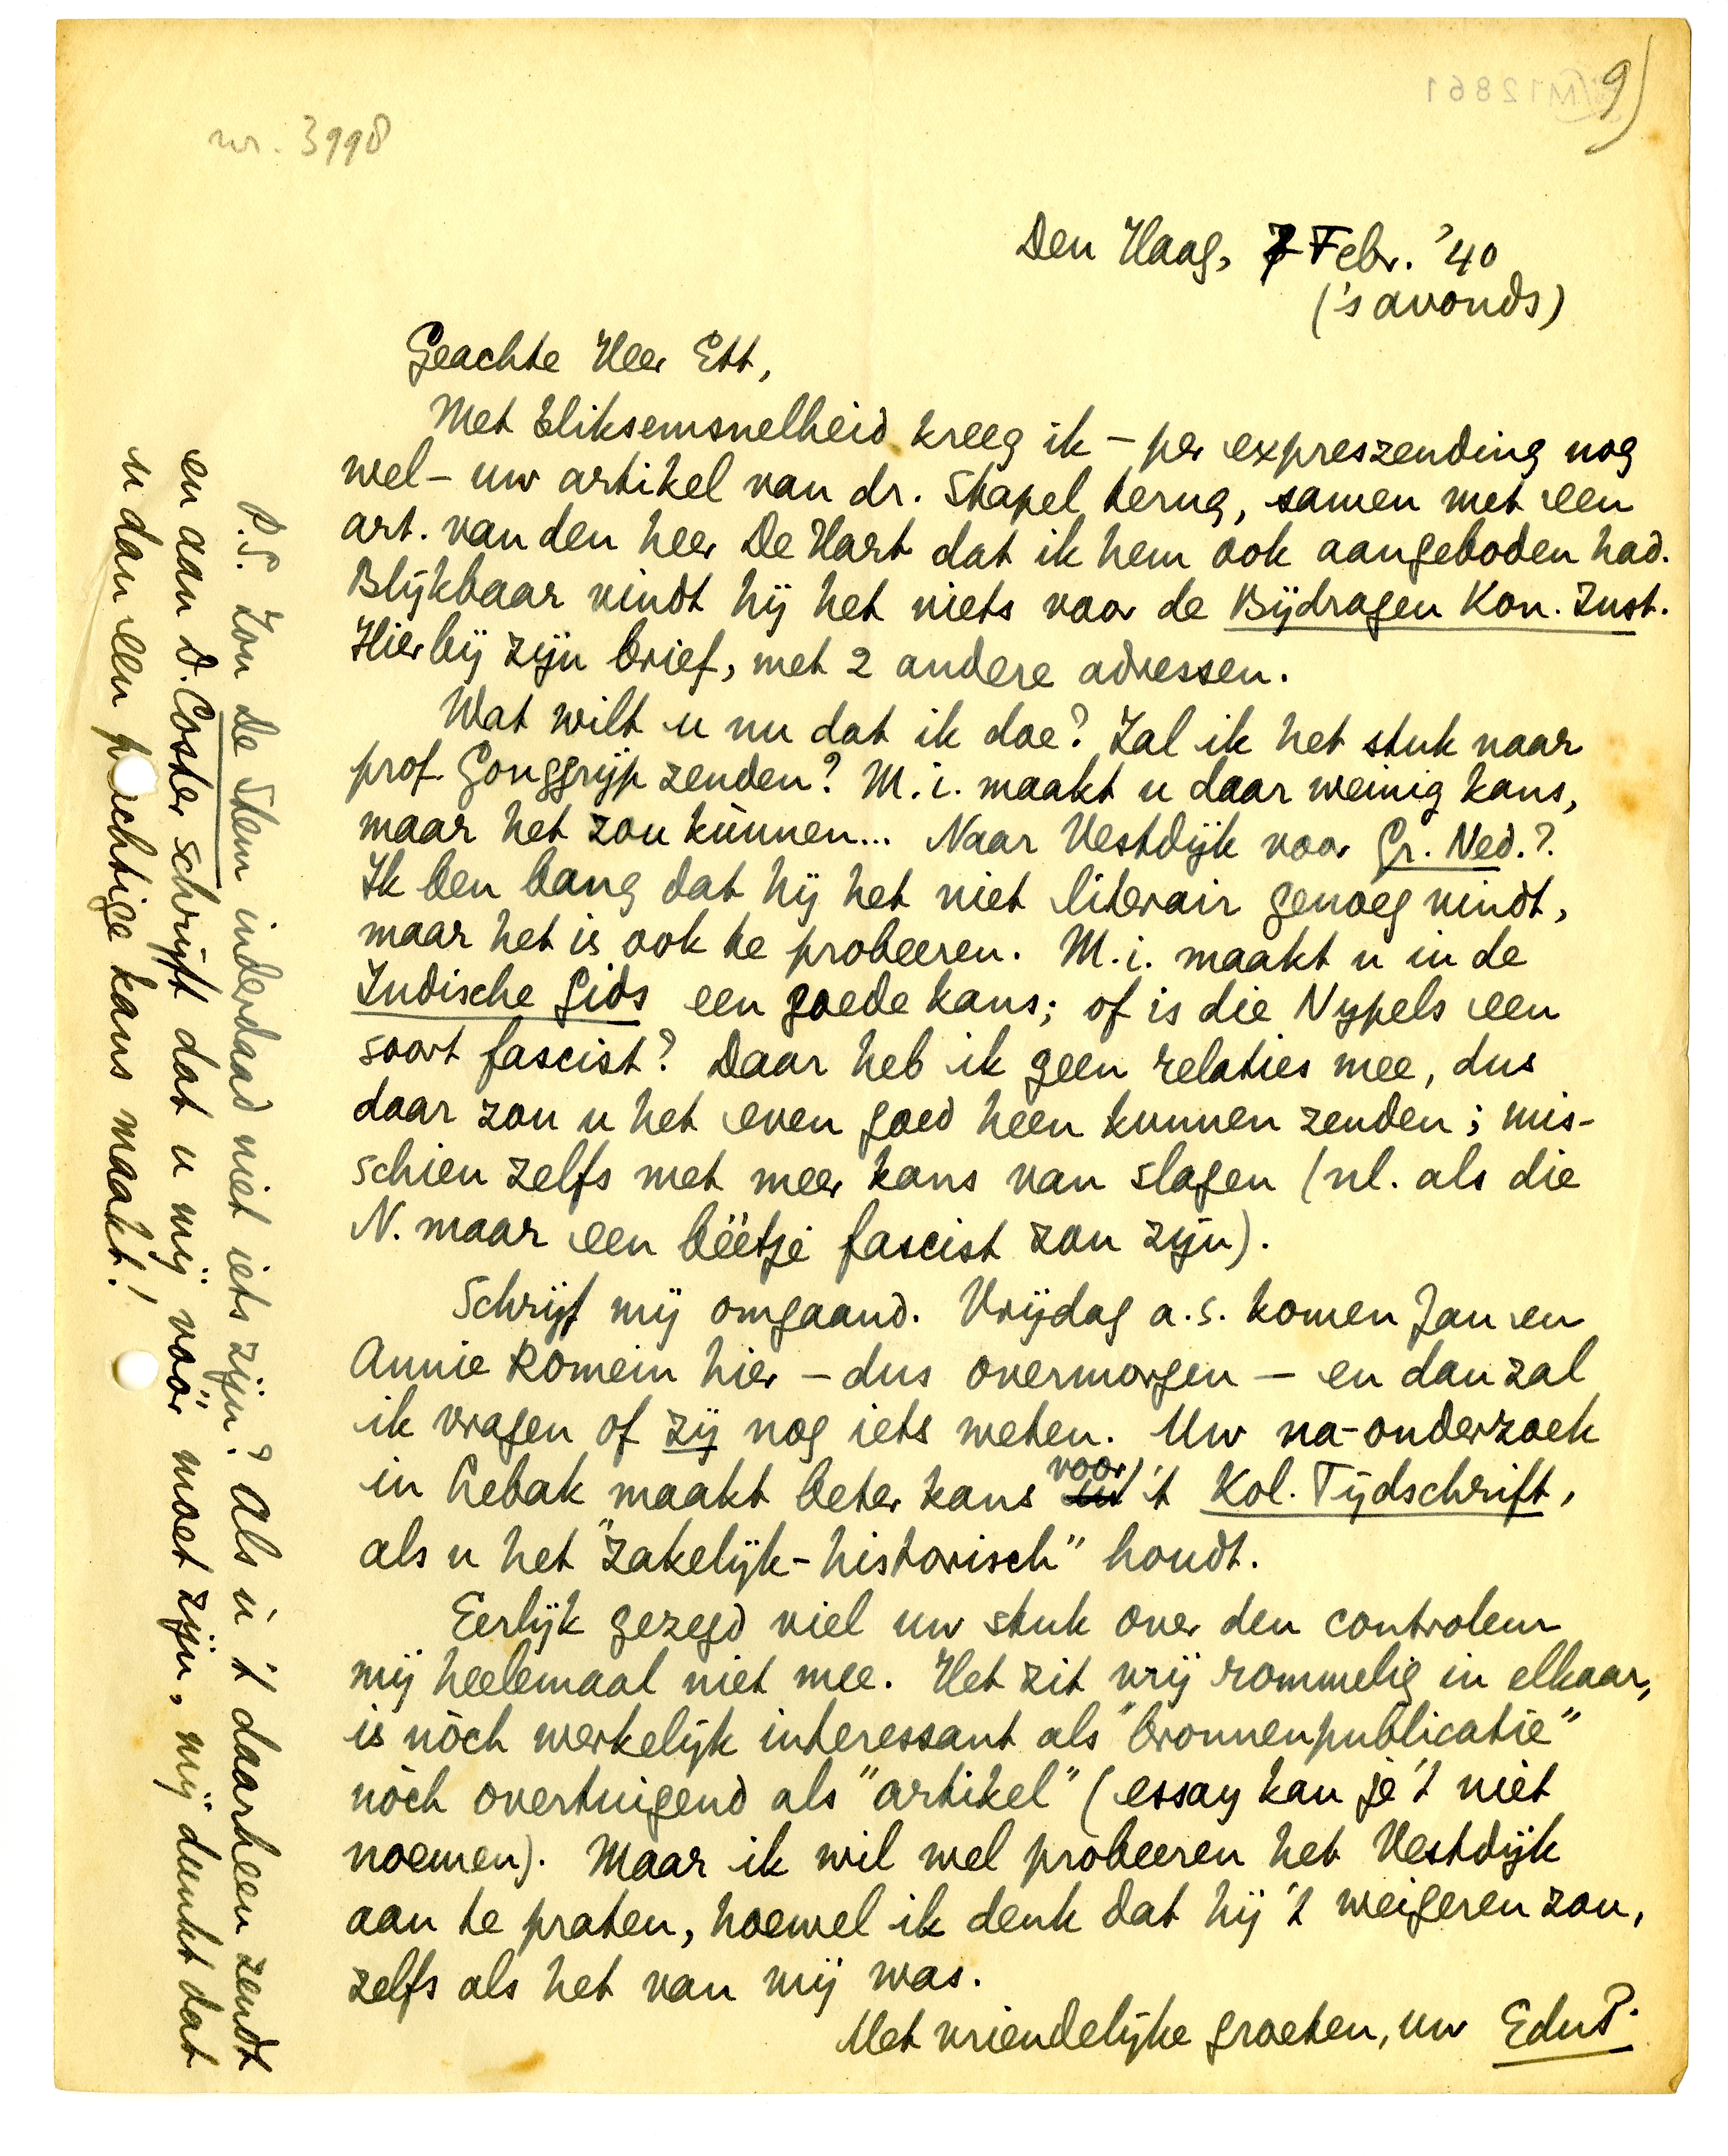 9)
M12861
nr. 3998
Den Haag, 7 Febr. '40
('s avonds)
Geachte Heer Ett,
Met bliksemsnelheid kreeg ik – per expreszending nog
wel – uw artikel van dr. Stapel terug, samen met een
art. van den heer De Hart dat ik hem ook aangeboden had.
Blijkbaar vindt hij het niets voor de Bijdragen Kon. Inst.
Hierbij zijn brief, met 2 andere adressen.
Wat wilt u nu dat ik doe? Zal ik het stuk naar
prof. Gonggrijp zenden? M.i. maakt u daar weinig kans,
maar het zou kùnnen... Naar Vestdijk voor Gr. Ned.?
Ik ben bang dat hij het niet literair genoeg vindt,
maar het is ook te probeeren. M.i. maakt u in de
Indische Gids een goede kans; of is die Nypels een
soort fascist? Daar heb ik geen relaties mee, dus
daar zou u het even goed heen kunnen zenden; mis-
schien zelfs met meer kans van slagen (nl. als die
N. maar een béétje fascist zou zijn).
Schrijf mij omgaand. Vrijdag a.s. komen Jan en
Annie Romein hier – dus overmorgen – en dan zal
ik vragen of zij nog iets weten. Uw na-onderzoek
in Lebak maakt beter kans voor 't Kol. Tijdschrift,
als u het "zakelijk-historisch" houdt.
Eerlijk gezegd viel uw stuk over den controleur
mij heelemaal niet mee. Het zit vrij rommelig in elkaar,
is nòch werkelijk interessant als "bronnenpublicatie"
nòch overtuigend als "artikel" (essay kan je 't niet
noemen). Maar ik wil wel probeeren het Vestdijk
aan te praten, hoewel ik denk dat hij 't weigeren zou,
zelfs als het van mij was.
Met vriendelijke groeten, uw EduP.
P.S. Zou De Stem inderdaad niet iets zijn? Als ù 't daarheen zendt
en aan D. Coster schrijft dat u mij vóór moet zijn, mij dunkt dat
u dan een prachtige kans maakt!